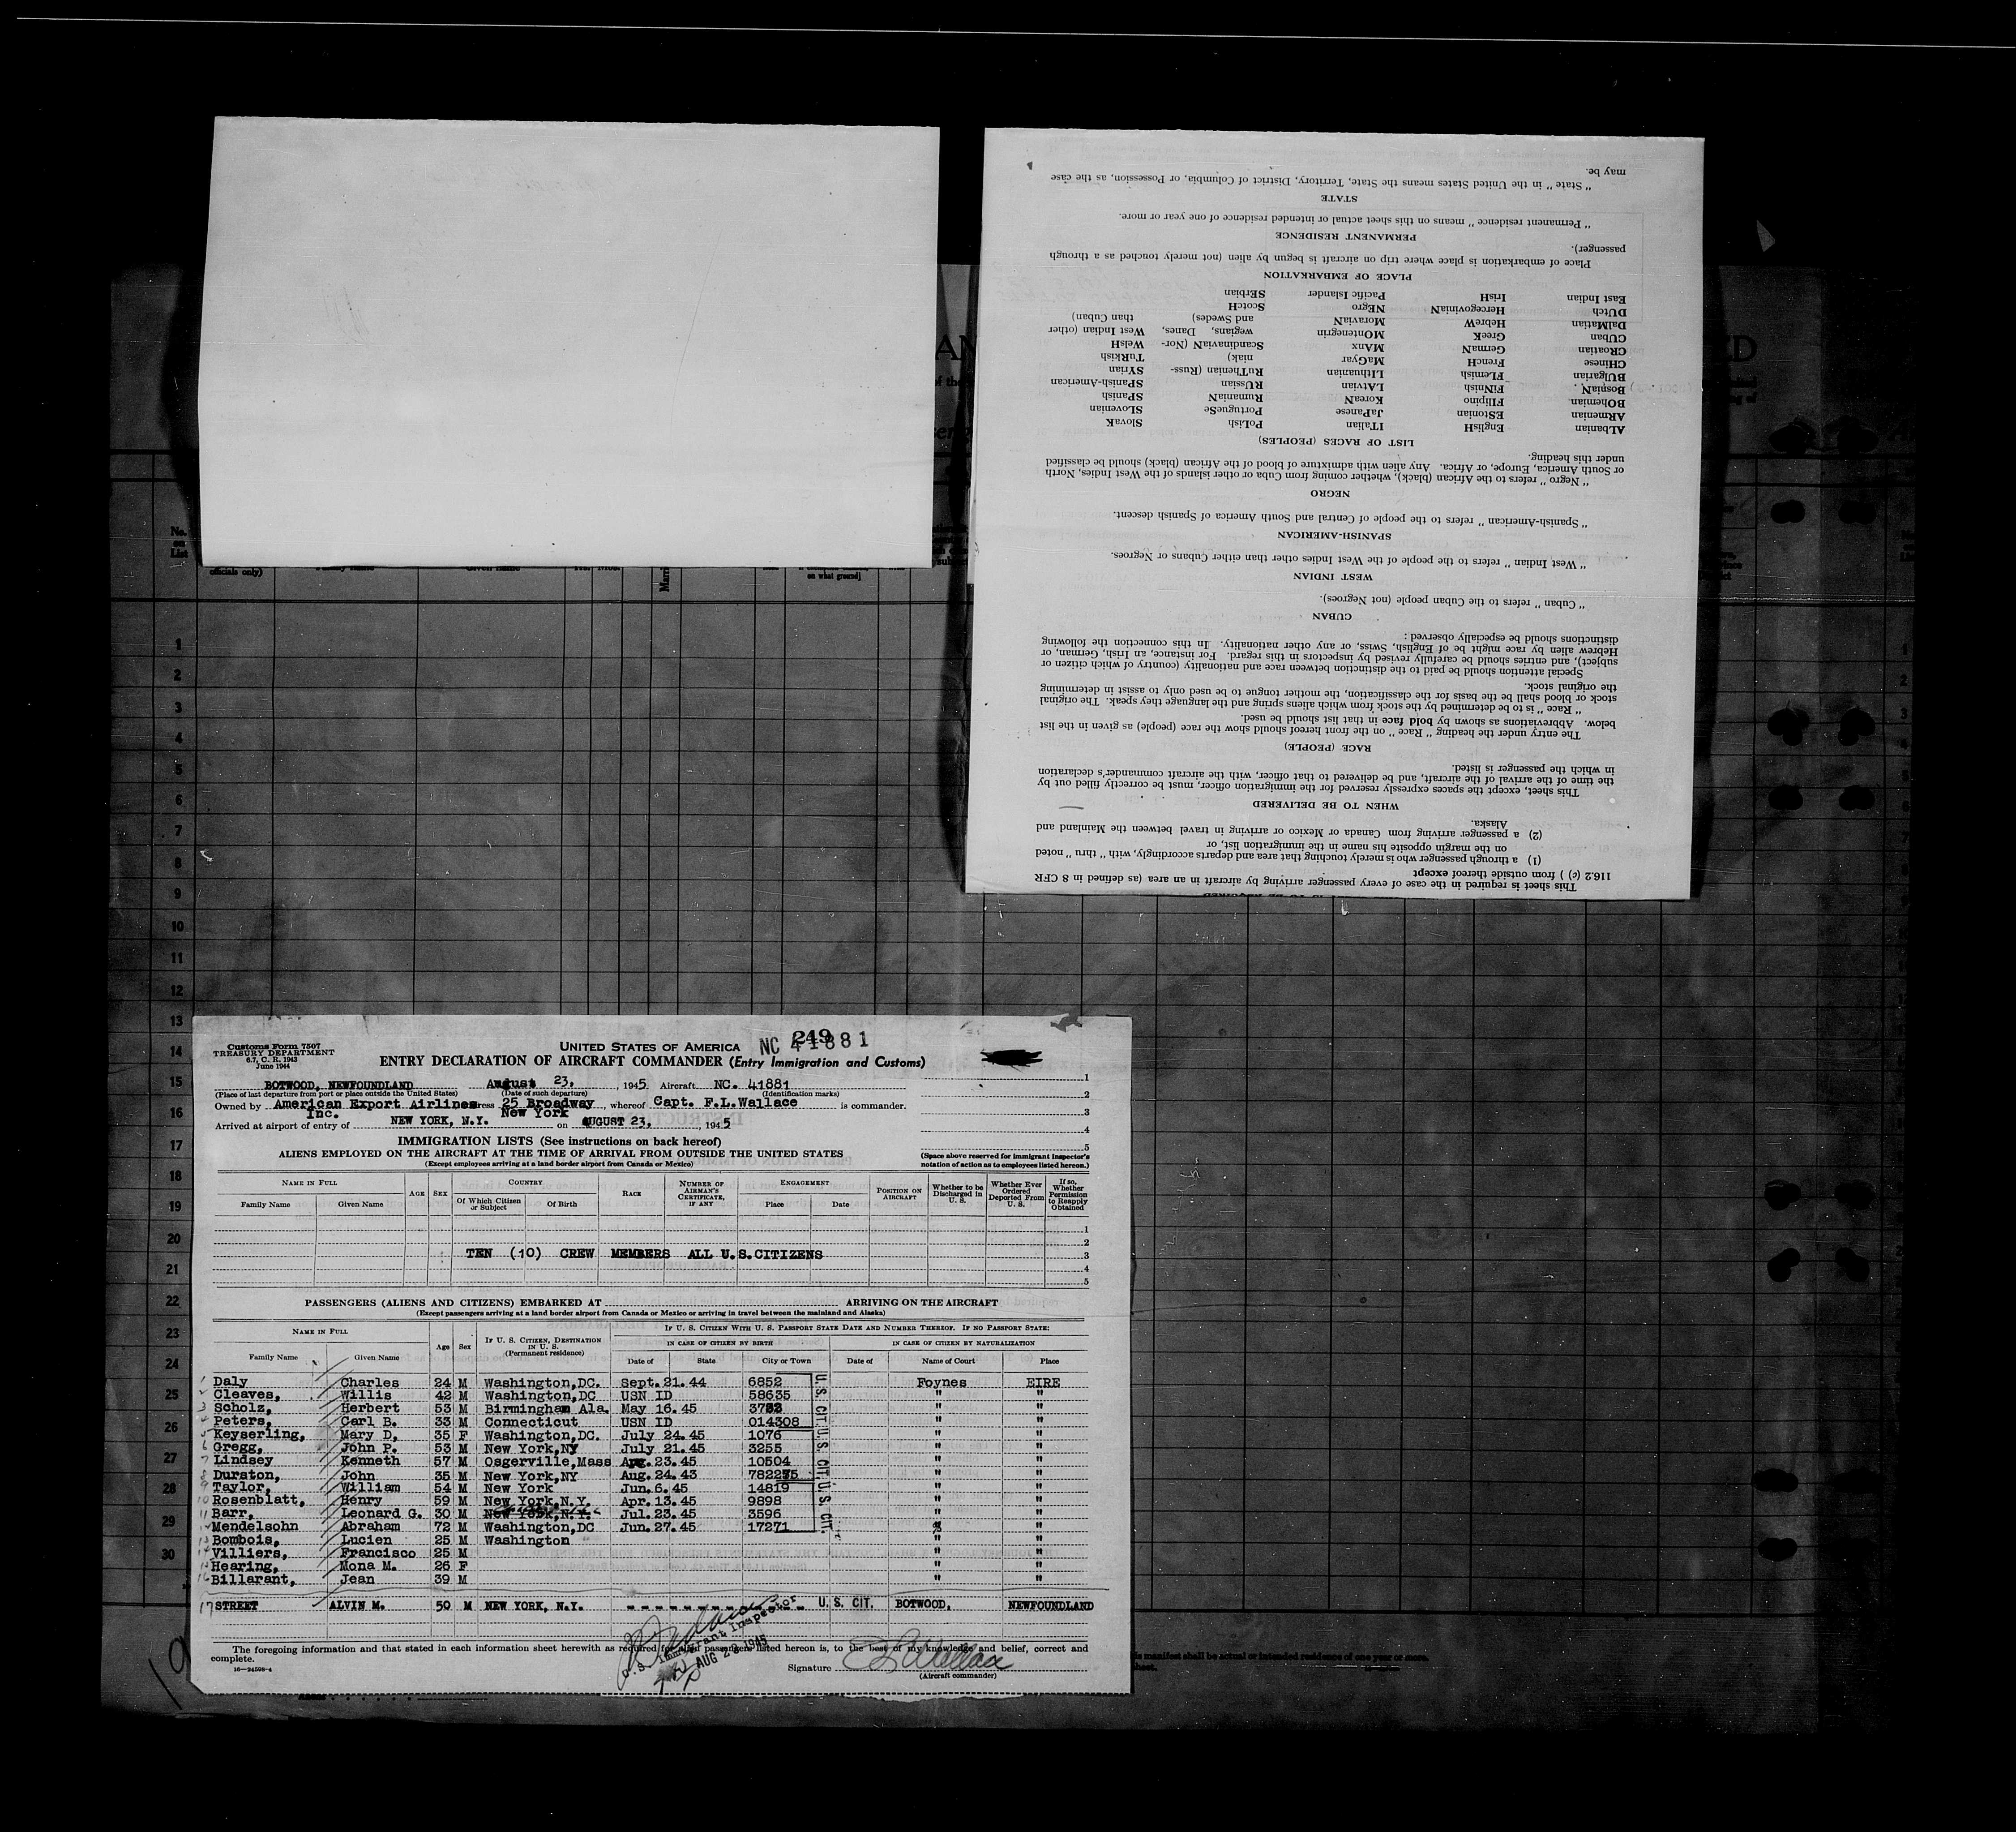 may be.
" State " in the United States means the State, Territory, District of Columbia, or Possession, as the case
STATE
" Permanent residence " means on this sheet actual or intended residence of one year or more.
PERMANENT RESIDENCE
passenger).
Place of embarkation is place where trip on aircraft is begun by alien (not merely touched as a through
PLACE OF EMBARKATION
East Indian IrisH Pacific Islander SErbian
DUtch HercegovinianN NEgro ScotcH
DalMatian HebreW MoraviaN and Swedes) than Cuban)
CUban GreeK MOntenegrin wegians, Danes, West Indian (other
CRoatian GermaN MAnx ScandinaviaN (Nor- WelsH
CHinese FrencH MaGyar niak) TuRkish
BUlgarian FLemish LIthuanian RuThenian (Russ- SYrian
BosniaN FiNnish LAtvian RUssian SPanish-American
BOhemian FIlipino KoreaN RumaniaN SPanish
ARmenian EStonian JaPanese PortugueSe SLovenian
ALbanian EnglisH ITalian PoLish SlovaK
LIST OF RACES (PEOPLES)
under this heading.
or South America, Europe, or Africa. Any alien with admixture of blood of the African (black) should be classified
" Negro " refers to the African (black), whether coming from Cuba or other islands of the West Indies, North
NEGRO
" Spanish-American " refers to the people of Central and South America of Spanish descent.
SPANISH-AMERICAN
" West Indian " refers to the people of the West Indies other than either Cubans or Negroes.
WEST INDIAN
" Cuban " refers to the Cuban people (not Negroes).
CUBAN
distinctions should be especially observed :
Hebrew alien by race might be of English, Swiss, or any other nationality. In this connection the following
subject), and entries should be carefully revised by inspectors in this regard. For instance, an Irish, German, or
Special attention should be paid to the distinction between race and nationality (country of which citizen or
the original stock.
stock or blood shall be the basis for the classification, the mother tongue to be used only to assist in determining
" Race " is to be determined by the stock from which aliens spring and the language they speak. The original
below. Abbreviations as shown by bold face in that list should be used.
The entry under the heading " Race " on the front hereof should show the race (people) as given in the list
RACE (PEOPLE)
in which the passenger is listed.
the time of the arrival of the aircraft, and be delivered to that officer, with the aircraft commander's declaration
This sheet, except the spaces expressly reserved for the immigration officer, must be correctly filled out by
WHEN TO BE DELIVERED
Alaska.
(2) a passenger arriving from Canada or Mexico or arriving in travel between the Mainland and
on the margin opposite his name in the immigration list, or
(1) a through passenger who is merely touching that area and departs accordingly, with " thru " noted
116.2 (c) ) from outside thereof except
This sheet is required in the case of every passenger arriving by aircraft in an area (as defined in 8 CFR
No. on List
officials only)
on what ground]
1
2
3
4
5
6
7
8
9
10
11
12
13
14
15
16
17
18
19
20
21
22
23
24
25
26
27
28
29
30
Customs Form 7507
TREASURY DEPARTMENT
6.7, C. R. 1943
June 1944
249
UNITED STATES OF AMERICA NC 41881
ENTRY DECLARATION OF AIRCRAFT COMMANDER (Entry Immigration and Customs)
BOTWOOD, NEWFOUNDLAND August 23, , 1945. Aircraft NC. 41881
(Place of last departure from port or place outside the United States) (Date of such departure) (Identification marks)
Owned by American Export Airlines Inc. 25 Broadway New York , whereof Capt. F.L.Wallace is commander.
Arrived at airport of entry of NEW YORK, N.Y. on AUGUST 23, , 1945
IMMIGRATION LISTS (See instructions on back hereof)
ALIENS EMPLOYED ON THE AIRCRAFT AT THE TIME OF ARRIVAL FROM OUTSIDE THE UNITED STATES
(Except employees arriving at a land border airport from Canada or Mexico)
1
2
3
4
5
(Space above reserved for immigrant inspector's notation of action as to employees listed hereon.)
NAME IN FULL AGE SEX COUNTRY RACE NUMBER OF AIRMAN'S CERTIFICATE, IF ANY ENGAGEMENT POSITION ON AIRCRAFT Whether to be Discharged in U. S. Whether Ever Ordered Deported From U. S. If so, Whether Permission to Reapply Obtained
Family Name Given Name Of Which Citizen or Subject Of Birth Place Date
1
2
TEN (10) CREW MEMBERS ALL U.S.CITIZENS 3
4
5
PASSENGERS (ALIENS AND CITIZENS) EMBARKED AT ARRIVING ON THE AIRCRAFT
(Except passengers arriving at a land border airport from Canada or Mexico or arriving in travel between the mainland and Alaska)
NAME IN FULL Age Sex IF U. S. CITIZEN, DESTINATION IN U. S. (Permanent residence) IF U. S. CITIZEN WITH U. S. PASSPORT STATE DATE AND NUMBER THEREOF. IF NO PASSPORT STATE:
IN CASE OF CITIZEN BY BIRTH IN CASE OF CITIZEN BY NATURALIZATION
Family Name Given Name Date of State City or Town Date of Name of Court Place
1 Daly Charles 24 M Washington,DC. Sept.21.44 6852 U. S. CIT. Foynes EIRE
2 Cleaves, Willis 42 M Washington,DC USN ID 58635 " "
3 Scholz, Herbert 53 M Birmingham Ala. May 16.45 " "
4 Peters, Carl B. 33 M Connecticut USN ID 014308 " "
5 Keyserling, Mary D, 35 F Washington,DC. July 24.45 1076 U. S. CIT. " "
6 Gregg, John P. 53 M New York,NY July 21.45 3255 " "
7 Lindsey Kenneth 57 M Osgerville,Mass Aug.23.45 10504 " "
8 Durston, John 35 M New York,NY Aug.24.43 " "
9 Taylor, William 54 M New York Jun.6.45 14819 U. S. CIT. " "
10 Rosenblatt, Henry 59 M New York,N.Y. Apr.13.45 9898 " "
11 Barr, Leonard G. 30 M New York,N.Y. Jul.23.45 3596 " "
12 Mendelsohn Abraham 72 M Washington,DC Jun.27.45 17271 " "
13 Bombois, Lucien 25 M Washington " "
14 Villiers, Francisco 25 M " "
15 Hearing, Mona M. 26 F " "
16 Billarant, Jean 39 M " "
17 STREET ALVIN M. 50 M NEW YORK, N.Y. - - - - - - - - - - U. S. CIT. BOTWOOD, NEWFOUNDLAND
The foregoing information and that stated in each information sheet herewith as required for alien passengers listed hereon is, to the best of my knowledge and belief, correct and complete.
U. S. Immigrant Inspector
AUG 23 1945
16—24508-4
Signature F L Wallace
(Aircraft commander)
is manifest shall be actual or intended residence of one year or more.
sheet.